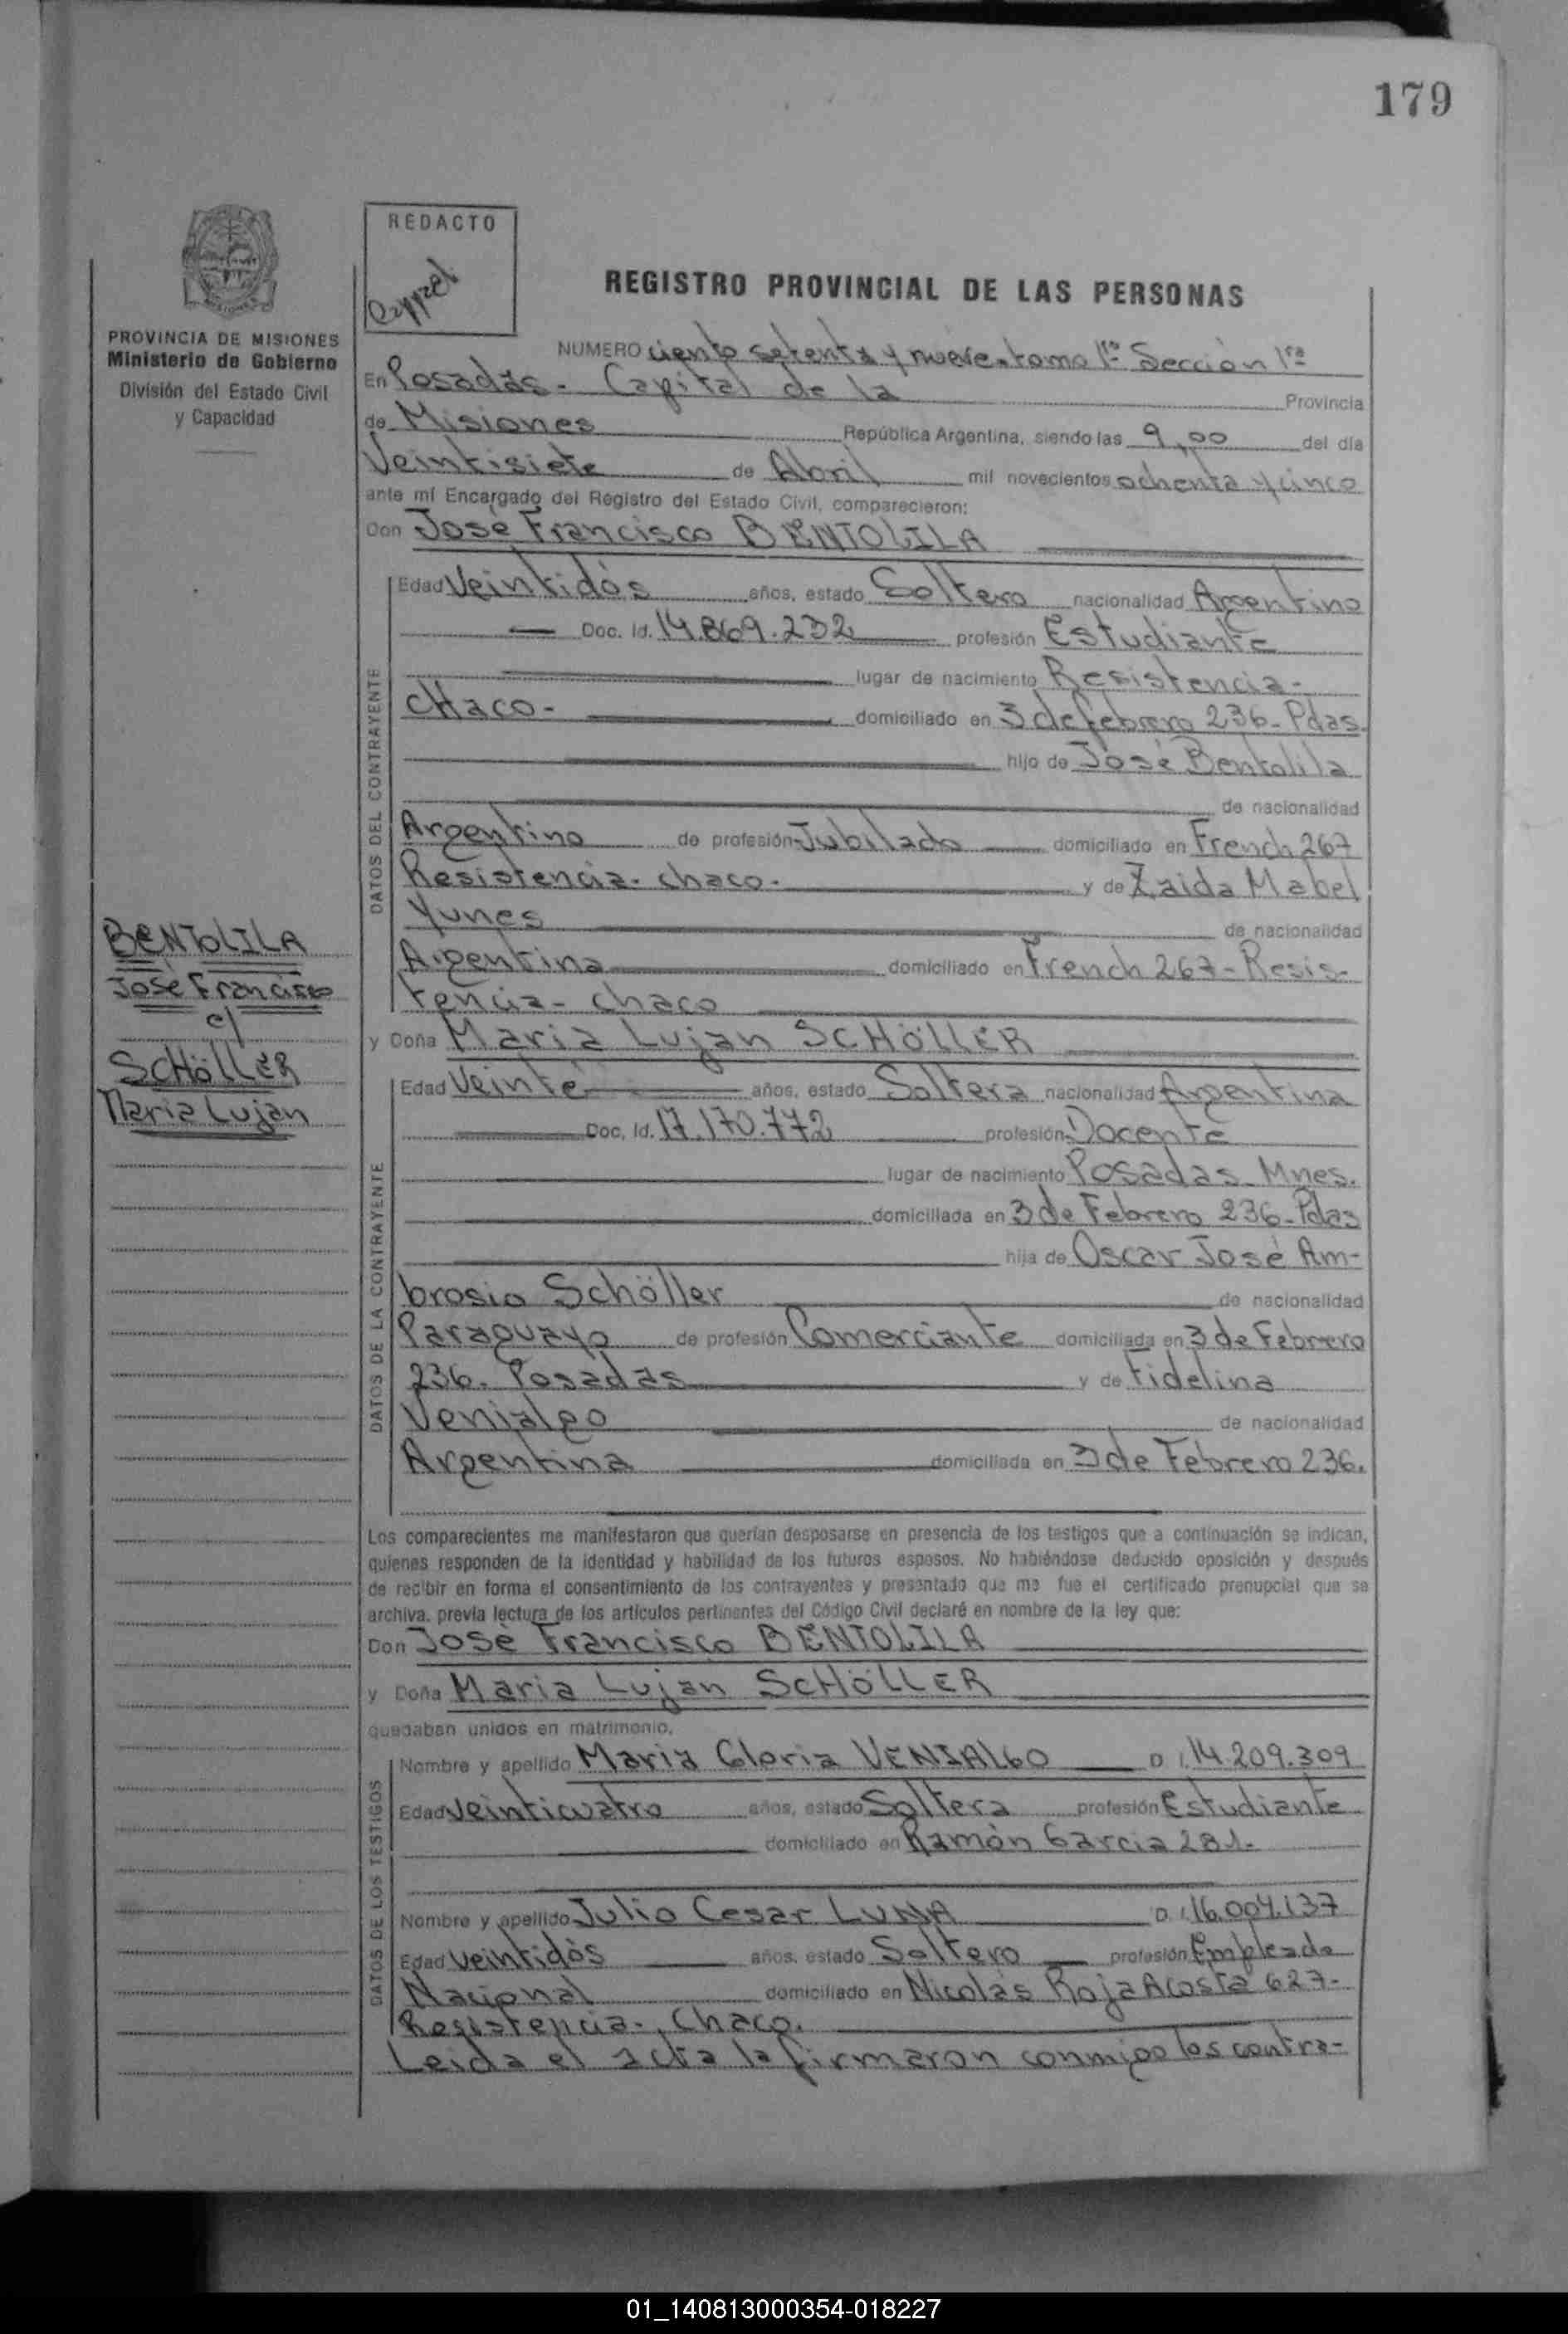 179
REDACTO
REGISTRO PROVINCIAL DE LAS PERSONAS
PROVINCIA DE MISIONES
Ministerio de Gobierno
División del Estado Civil
y Capacidad
NUMERO ciento setenta y nueve-tomo 1º Sección 1ra
En Posadas - Capital de la Provincia
de Misiones República Argentina, siendo las 9,00 del día
Veintisiete de Abril mil novecientos ochenta y cinco
ante mí Encargado del Registro del Estado Civil, comparecieron:
Don José Francisco BENTOLILA
DATOS DEL CONTRAYENTE
Edad Veintidós años, estado Soltero nacionalidad Argentino
Doc. Id. 14.869.232 profesión Estudiante
lugar de nacimiento Resistencia -
CHaco - domiciliado en 3 de febrero 236 - Pdas.
hijo de José Bentolila
de nacionalidad
Argentino de profesión Jubilado domiciliado en French 267
Resistencia - chaco - y de Zaida Mabel
Yunes de nacionalidad
Argentina domiciliado en French 267 - Resis-
tencia - chaco
BENTOLILA
José Francisco
c/
SCHÖLLER
Maria Lujan
y Doña Maria Lujan SCHÖLLER
DATOS DE LA CONTRAYENTE
Edad Veinte años, estado Soltera nacionalidad Argentina
Doc. Id. 17.170.772 profesión Docente
lugar de nacimiento Posadas Mnes.
domiciliada en 3 de Febrero 236 - Pdas
hija de Oscar José Am-
brosio Schöller de nacionalidad
Paraguayo de profesión Comerciante domiciliada en 3 de Febrero
236 - Posadas y de Fidelina
Venialgo de nacionalidad
Argentina domiciliada en 3 de Febrero 236.
Los comparecientes me manifestaron que querían desposarse en presencia de los testigos que a continuación se indican,
quienes responden de la identidad y habilidad de los futuros esposos. No habiéndose deducido oposición y después
de recibir en forma el consentimiento de los contrayentes y presentado que me fue el certificado prenupcial que se
archiva, previa lectura de los artículos pertinentes del Código Civil declaré en nombre de la ley que:
Don José Francisco BENTOLILA
y Doña Maria Lujan SCHÖLLER
quedaban unidos en matrimonio.
DATOS DE LOS TESTIGOS
Nombre y apellido Maria Gloria VENIALGO D. I. 14.209.309
Edad Veinticuatro años, estado Soltera profesión Estudiante
domiciliado en Ramón Garcia 281.
Nombre y apellido Julio Cesar LUNA D. I. 16.004.137
Edad Veintidós años, estado Soltero profesión Empleado
Nacional domiciliado en Nicolás Roja Acosta 627 -
Resistencia -, Chaco.
Leida el acta la firmaron conmigo los contra-
01_140813000354-018227